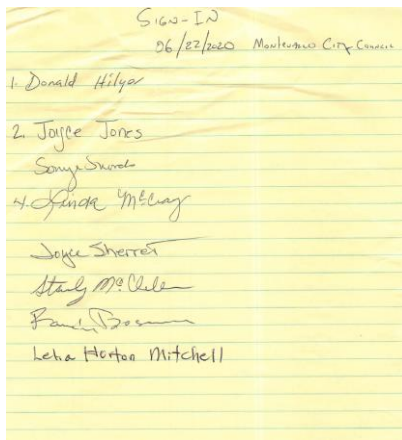 SIGN-IN
06/22/2020 Montevallo City Council
1. Donald Hilyer
2. Joyce Jones
Sonya Swords
4. Linda McCray
Joyce Sherrer
Stanly
Letia Horton Mitchell